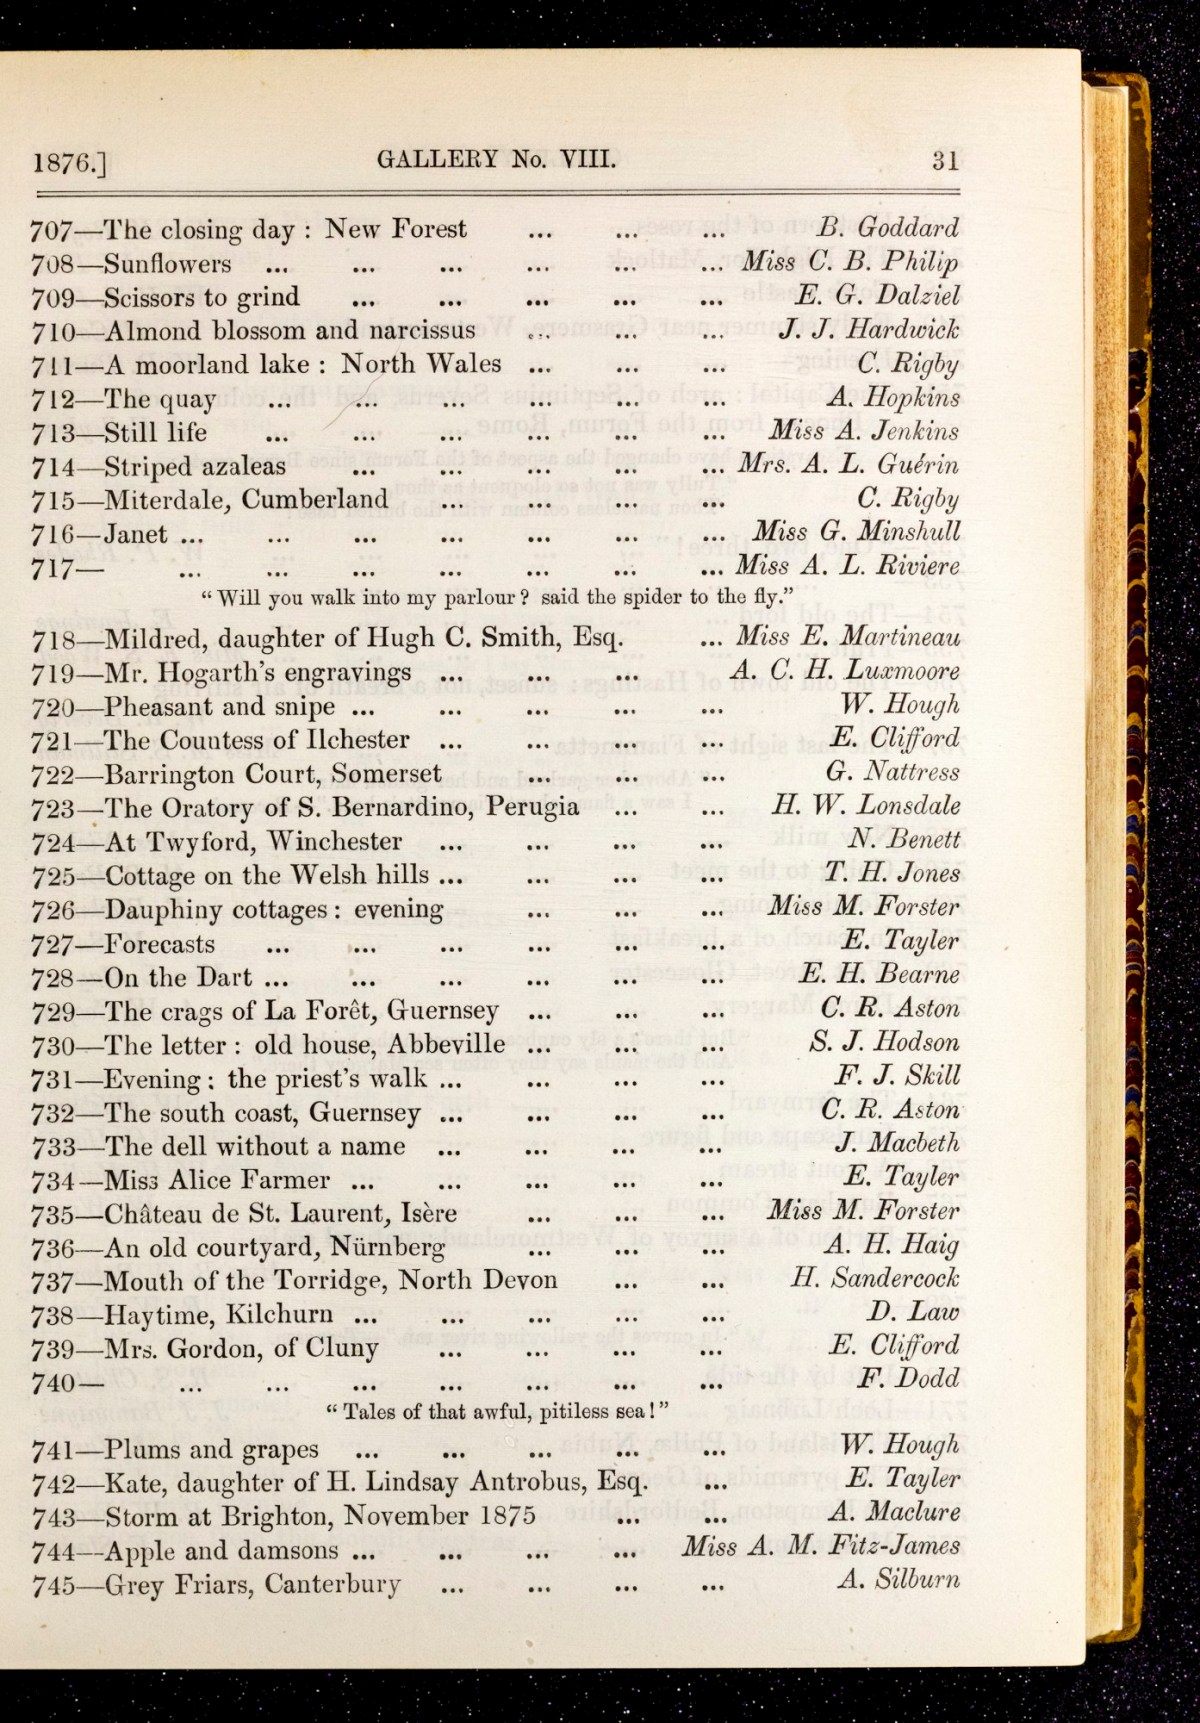 1876.] GALLERY No. VIII. 31
707—The closing day : New Forest ... ... ... B. Goddard
708—Sunflowers ... ... ... ... ... ... Miss C. B. Philip
709—Scissors to grind ... ... ... ... ... E. G. Dalziel
710—Almond blossom and narcissus ... ... ... J. J. Hardwick
711—A moorland lake : North Wales ... ... ... C. Rigby
712—The quay ... ... ... ... ... ... A. Hopkins
713—Still life ... ... ... ... ... ... Miss A. Jenkins
714—Striped azaleas ... ... ... ... ... Mrs. A. L. Guérin
715—Miterdale, Cumberland ... ... ... ... C. Rigby
716—Janet ... ... ... ... ... ... ... Miss G. Minshull
717— ... ... ... ... ... ... ... Miss A. L. Riviere
“ Will you walk into my parlour ? said the spider to the fly.”
718—Mildred, daughter of Hugh C. Smith, Esq. ... Miss E. Martineau
719—Mr. Hogarth’s engravings ... ... ... A. C. H. Luxmoore
720—Pheasant and snipe ... ... ... ... ... W. Hough
721—The Countess of Ilchester ... ... ... ... E. Clifford
722—Barrington Court, Somerset ... ... ... G. Nattress
723—The Oratory of S. Bernardino, Perugia ... ... H. W. Lonsdale
724—At Twyford, Winchester ... ... ... ... N. Benett
725—Cottage on the Welsh hills ... ... ... ... T. H. Jones
726—Dauphiny cottages : evening ... ... ... Miss M. Forster
727—Forecasts ... ... ... ... ... ... E. Tayler
728—On the Dart ... ... ... ... ... ... E. H. Bearne
729—The crags of La Forêt, Guernsey ... ... ... C. R. Aston
730—The letter : old house, Abbeville ... ... ... S. J. Hodson
731—Evening : the priest’s walk ... ... ... ... F. J. Skill
732—The south coast, Guernsey ... ... ... ... C. R. Aston
733—The dell without a name ... ... ... ... J. Macbeth
734—Miss Alice Farmer ... ... ... ... ... E. Tayler
735—Château de St. Laurent, Isère ... ... ... Miss M. Forster
736—An old courtyard, Nürnberg ... ... ... A. H. Haig
737—Mouth of the Torridge, North Devon ... ... H. Sandercock
738—Haytime, Kilchurn ... ... ... ... ... D. Law
739—Mrs. Gordon, of Cluny ... ... ... ... E. Clifford
740— ... ... ... ... ... ... ... F. Dodd
“ Tales of that awful, pitiless sea ! ”
741—Plums and grapes ... ... ... ... ... W. Hough
742—Kate, daughter of H. Lindsay Antrobus, Esq. ... E. Tayler
743—Storm at Brighton, November 1875 ... ... A. Maclure
744—Apple and damsons ... ... ... ... Miss A. M. Fitz-James
745—Grey Friars, Canterbury ... ... ... ... A. Silburn